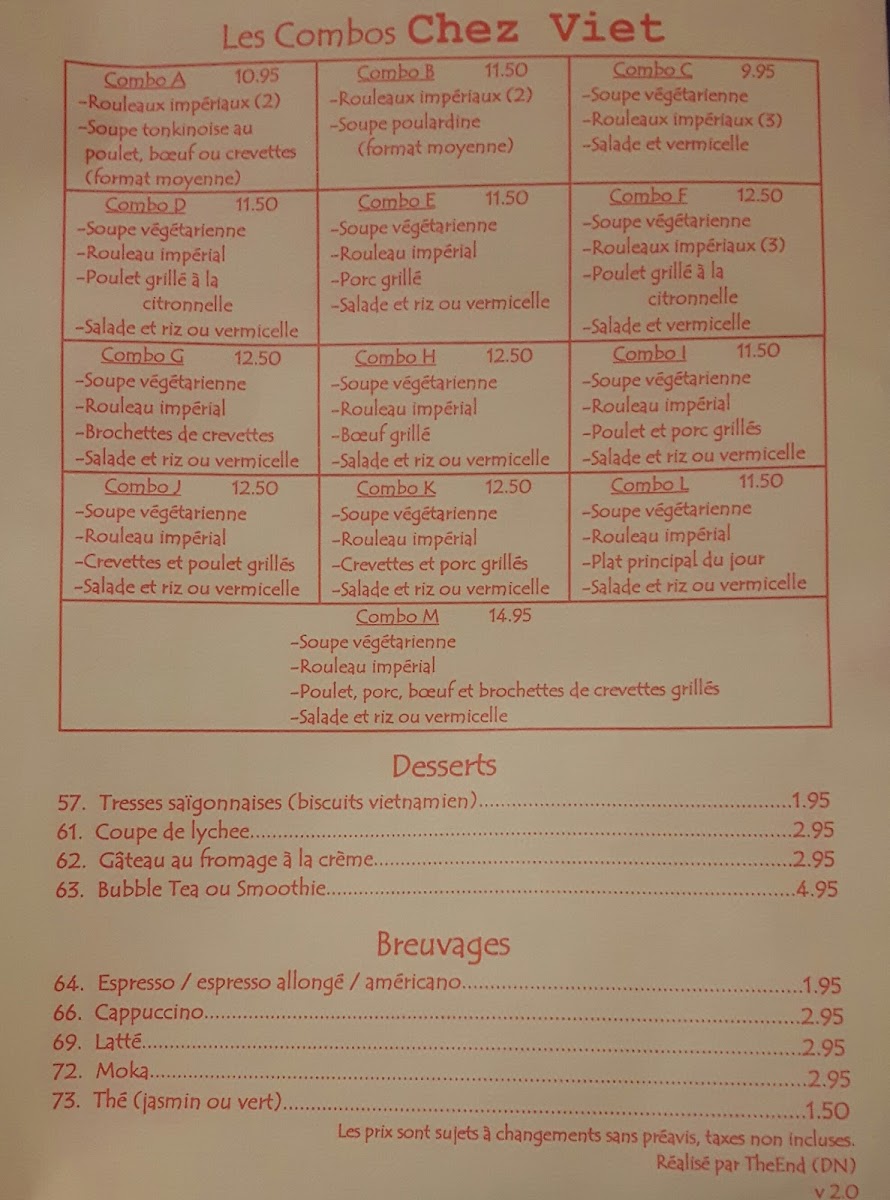 Les Combos Chez Viet
Combo A 10.95
-Rouleaux impériaux (2)
-Soupe tonkinoise au
poulet, bœuf ou crevettes
(format moyenne)
Combo B 11.50
-Rouleaux impériaux (2)
-Soupe poulardine
(format moyenne)
Combo C 9.95
-Soupe végétarienne
-Rouleaux impériaux (3)
-Salade et vermicelle
Combo D 11.50
-Soupe végétarienne
-Rouleau impérial
-Poulet grillé à la
citronnelle
-Salade et riz ou vermicelle
Combo E 11.50
-Soupe végétarienne
-Rouleau impérial
-Porc grillé
-Salade et riz ou vermicelle
Combo F 12.50
-Soupe végétarienne
-Rouleaux impériaux (3)
-Poulet grillé à la
citronnelle
-Salade et vermicelle
Combo G 12.50
-Soupe végétarienne
-Rouleau impérial
-Brochettes de crevettes
-Salade et riz ou vermicelle
Combo H 12.50
-Soupe végétarienne
-Rouleau impérial
-Bœuf grillé
-Salade et riz ou vermicelle
Combo I 11.50
-Soupe végétarienne
-Rouleau impérial
-Poulet et porc grillés
-Salade et riz ou vermicelle
Combo J 12.50
-Soupe végétarienne
-Rouleau impérial
-Crevettes et poulet grillés
-Salade et riz ou vermicelle
Combo K 12.50
-Soupe végétarienne
-Rouleau impérial
-Crevettes et porc grillés
-Salade et riz ou vermicelle
Combo L 11.50
-Soupe végétarienne
-Rouleau impérial
-Plat principal du jour
-Salade et riz ou vermicelle
Combo M 14.95
-Soupe végétarienne
-Rouleau impérial
-Poulet, porc, bœuf et brochettes de crevettes grillés
-Salade et riz ou vermicelle
Desserts
57. Tresses saïgonnaises (biscuits vietnamien)...1.95
61. Coupe de lychee...2.95
62. Gâteau au fromage à la crème...2.95
63. Bubble Tea ou Smoothie...4.95
Breuvages
64. Espresso / espresso allongé / américano...1.95
66. Cappuccino...2.95
69. Latté...2.95
72. Moka...2.95
73. Thé (jasmin ou vert)...1.50
Les prix sont sujets à changements sans préavis, taxes non incluses.
Réalisé par TheEnd (DN)
v 2.0